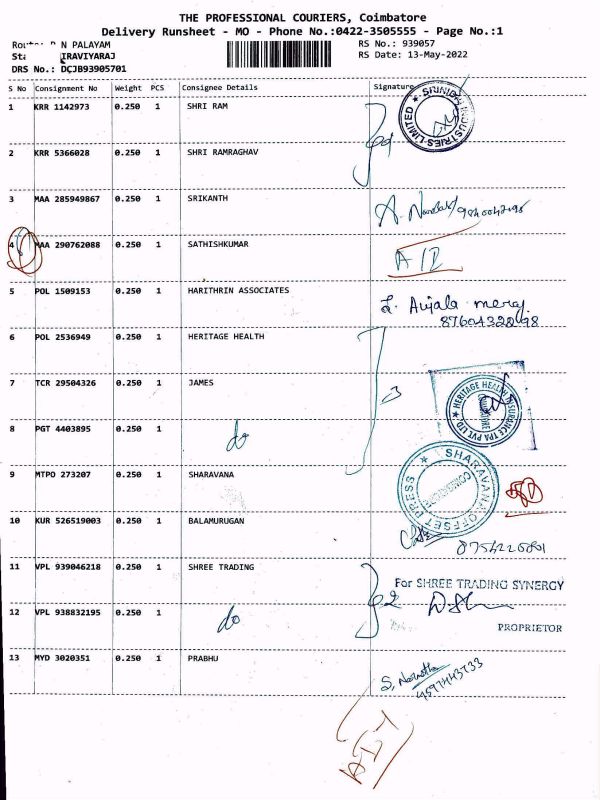 THE PROFESSIONAL COURIERS, Coimbatore
Delivery Runsheet - MO - Phone No.:0422-3505555 - Page No.:1
N PALAYAM RS No.: 939057
IRAVIYARAJ RS Date: 13-May-2022
DRS No.: DCJB93905701
S No Consignment No Weight PCS Consignee Details Signature
1 KRR 1142973 0.250 1 SHRI RAM
INDUSTRIES-LIMITED
2 KRR 5366028 0.250 1 SHRI RAMRAGHAV
3 MAA 285949867 0.250 1 SRIKANTH
4 MAA 290762088 0.250 1 SATHISHKUMAR
5 POL 1509153 0.250 1 HARITHRIN ASSOCIATES
6 POL 2536949 0.250 1 HERITAGE HEALTH
7 TCR 29504326 0.250 1 JAMES
HERITAGE HEALTH INSURANCE TPA PVT LTD
8 PGT 4403895 0.250 1 do
9 MTPO 273207 0.250 1 SHARAVANA
SHARAVANA OFFSET PRESS
COIMBATORE
10 KUR 526519003 0.250 1 BALAMURUGAN
11 VPL 939046218 0.250 1 SHREE TRADING
For SHREE TRADING SYNERGY
12 VPL 938832195 0.250 1 do
PROPRIETOR
13 MYD 3020351 0.250 1 PRABHU